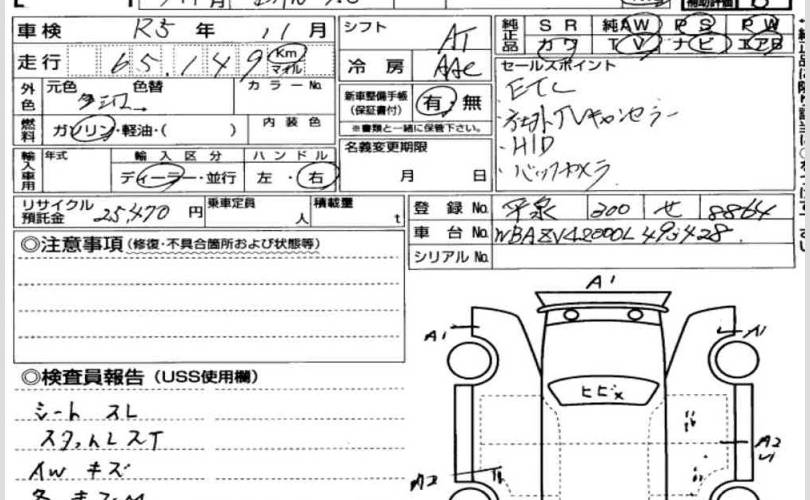 車検 R5年 11月
走行 65,149 Km マイル
外色 元色 色替 カラーNo.
燃料 ガソリン・軽油・( ) 内装色
輸入車用 年式 輸入区分 ハンドル
ディーラー・並行 左・右
リサイクル預託金 25,470円 乗車定員 人 積載量 t
シフト AT
冷房 AAC
新車整備手帳(保証書付) 有・無
※書類と一緒に保管下さい。
名義変更期限
月 日
純正品 SR 純AW PS PW
カワ TV ナビ エアB
セールスポイント
・ETC
・TVキャンセラー
・HID
・バックカメラ
登録No. 平泉 300 せ 8864
車台No.
シリアルNo.
◎注意事項(修復・不具合箇所および状態等)
◎検査員報告(USS使用欄)
シート スレ
AW キズ
A1
A1
A1
ヒビX
A2
A2